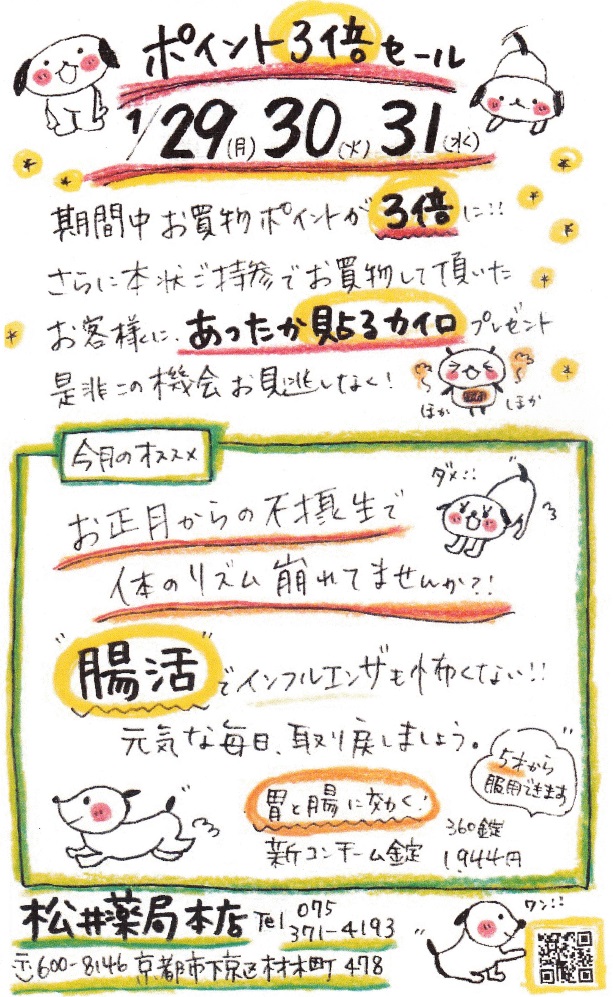 ポイント3倍セール
1/29(月)30(火)31(水)
期間中お買物ポイントが3倍に!!
さらに本状ご持参でお買物して頂いた
お客様に、あったか貼るカイロプレゼント
是非この機会お見逃しなく!
ほか ほか
今月のオススメ
ダメ!!
お正月からの不摂生で
体のリズム崩れてませんか?!
"腸活"でインフルエンザも怖くない!!
元気な毎日、取り戻しましょう。
5才から
服用できます
胃と腸に効く!
新コンチーム錠
360錠
1,944円
松井薬局本店 Tel 075
371-4193
〒600-8146 京都市下京区材木町478
ワン!!